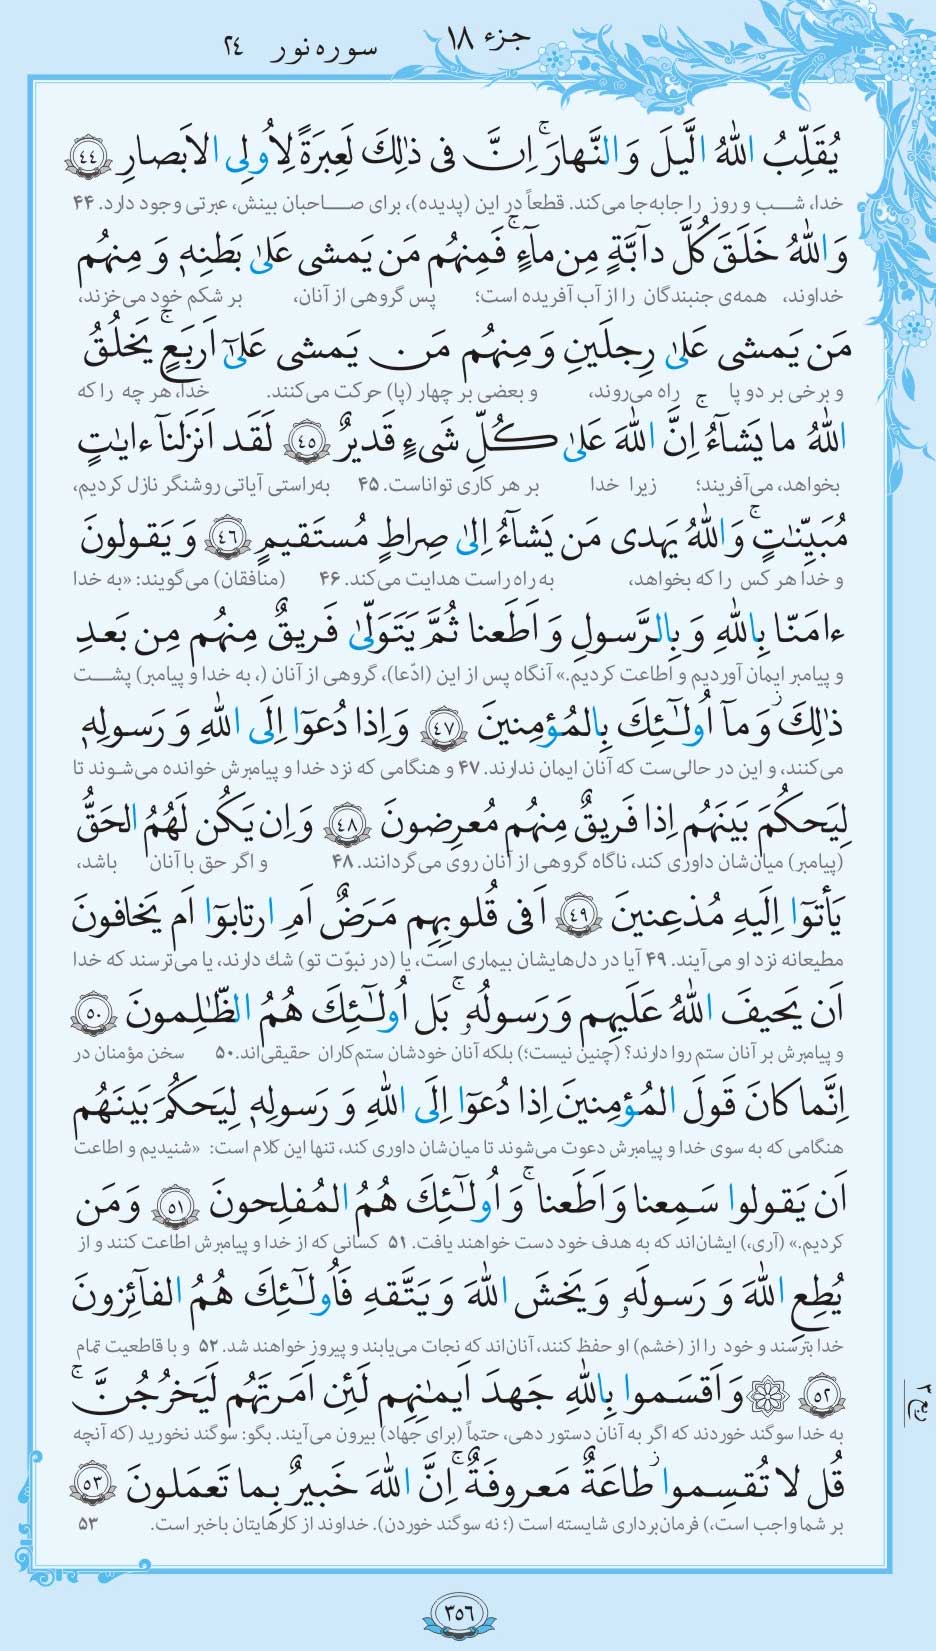 جزء ۱۸
سوره نور ۲۴
يُقَلِّبُ اللهُ الَّيلَ وَ النَّهارَ ۚ اِنَّ فی ذٰلِكَ لَعِبرَةً لِاُولِی الاَبصارِ ﴿٤٤﴾
خدا، شب و روز را جابه‌جا می‌کند. قطعاً در این (پدیده)، برای صاحبان بینش، عبرتی وجود دارد. ۴۴
وَاللهُ خَلَقَ كُلَّ دآبَّةٍ مِن مآءٍ ۚ فَمِنهُم مَن يَمشی عَلیٰ بَطنِهٖ وَ مِنهُم
خداوند، همه‌ی جنبندگان را از آب آفریده است؛ پس گروهی از آنان، بر شکم خود می‌خزند،
مَن يَمشی عَلیٰ رِجلَينِ وَ مِنهُم مَن يَمشی عَلیٰٓ اَربَعٍ ۚ يَخلُقُ
و برخی بر دو پا راه می‌روند، و بعضی بر چهار (پا) حرکت می‌کنند. خدا، هر چه را که
اللهُ ما يَشآءُ ۚ اِنَّ اللهَ عَلیٰ كُلِّ شَیءٍ قَديرٌ ﴿٤٥﴾ لَقَد اَنزَلنآ ءایٰتٍ
بخواهد، می‌آفریند؛ زیرا خدا بر هر کاری تواناست. ۴۵ به‌راستی آیاتی روشنگر نازل کردیم،
مُبَيِّنٰتٍ ۚ وَاللهُ يَهدی مَن يَشآءُ اِلیٰ صِراطٍ مُستَقيمٍ ﴿٤٦﴾ وَ يَقولونَ
و خدا هر کس را که بخواهد، به راه راست هدایت می‌کند. ۴۶ (منافقان) می‌گویند: «به خدا
ءامَنّا بِاللهِ وَ بِالرَّسولِ وَ اَطَعنا ثُمَّ يَتَوَلّیٰ فَريقٌ مِنهُم مِن بَعدِ
و پیامبر ایمان آوردیم و اطاعت کردیم.» آنگاه پس از این (ادّعا)، گروهی از آنان (، به خدا و پیامبر) پشت
ذٰلِكَ ۚ وَ مآ اُولٰٓئِكَ بِالمُؤمِنينَ ﴿٤٧﴾ وَ اِذا دُعوٓا اِلَی اللهِ وَ رَسولِهٖ
می‌کنند، و این در حالی‌ست که آنان ایمان ندارند. ۴۷ و هنگامی که نزد خدا و پیامبرش خوانده می‌شوند تا
لِيَحكُمَ بَينَهُم اِذا فَريقٌ مِنهُم مُعرِضونَ ﴿٤٨﴾ وَ اِن يَكُن لَهُمُ الحَقُّ
(پیامبر) میان‌شان داوری کند، ناگاه گروهی از آنان روی می‌گردانند. ۴۸ و اگر حق با آنان باشد،
يَأتوٓا اِلَيهِ مُذعِنينَ ﴿٤٩﴾ اَفی قُلوبِهِم مَرَضٌ اَمِ ارتابوٓا اَم يَخافونَ
مطیعانه نزد او می‌آیند. ۴۹ آیا در دل‌هایشان بیماری است، یا (در نبوّت تو) شك دارند، یا می‌ترسند که خدا
اَن يَحيفَ اللهُ عَلَيهِم وَ رَسولُهٗ ۚ بَل اُولٰٓئِكَ هُمُ الظّٰلِمونَ ﴿٥٠﴾
و پیامبرش بر آنان ستم روا دارند؟ (چنین نیست؛) بلکه آنان خودشان ستم‌کاران حقیقی‌اند. ۵۰ سخن مؤمنان در
اِنَّما كانَ قَولَ المُؤمِنينَ اِذا دُعوٓا اِلَی اللهِ وَ رَسولِهٖ لِيَحكُمَ بَينَهُم
هنگامی که به سوی خدا و پیامبرش دعوت می‌شوند تا میان‌شان داوری کند، تنها این کلام است: «شنیدیم و اطاعت
اَن يَقولوا سَمِعنا وَ اَطَعنا ۚ وَ اُولٰٓئِكَ هُمُ المُفلِحونَ ﴿٥١﴾ وَ مَن
کردیم.» (آری،) ایشان‌اند که به هدف خود دست خواهند یافت. ۵۱ کسانی که از خدا و پیامبرش اطاعت کنند و از
يُطِعِ اللهَ وَ رَسولَهٗ وَ يَخشَ اللهَ وَ يَتَّقهِ فَاُولٰٓئِكَ هُمُ الفآئِزونَ
خدا بترسند و خود را از (خشم) او حفظ کنند، آنان‌اند که نجات می‌یابند و پیروز خواهند شد. ۵۲ و با قاطعیت تمام
﴿٥٢﴾ وَ اَقسَموا بِاللهِ جَهدَ اَيمٰنِهِم لَئِن اَمَرتَهُم لَيَخرُجُنَّ ۚ
به خدا سوگند خوردند که اگر به آنان دستور دهی، حتماً (برای جهاد) بیرون می‌آیند. بگو: سوگند نخورید (که آنچه
قُل لا تُقسِموا ۖ طاعَةٌ مَعروفَةٌ ۚ اِنَّ اللهَ خَبيرٌ بِما تَعمَلونَ ﴿٥٣﴾
بر شما واجب است،) فرمان‌برداری شایسته است (؛ نه سوگند خوردن). خداوند از کارهایتان باخبر است. ۵۳
ربع ۳
۳۵۶